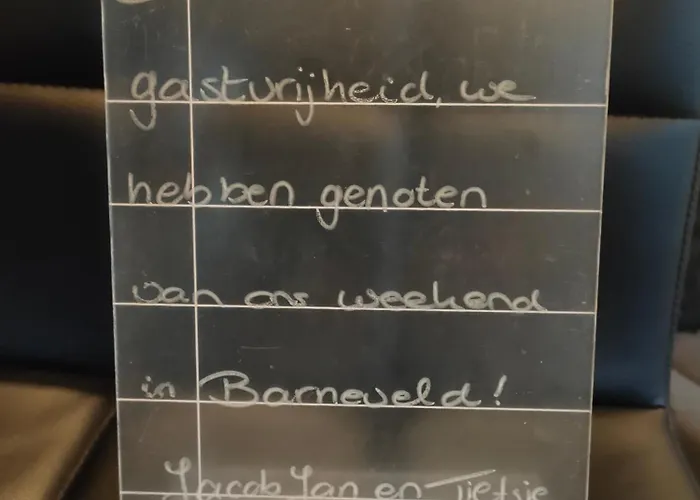 gastvrijheid, we
hebben genoten
van ons weekend
in Barneveld!
Jacob Jan en Tietsie